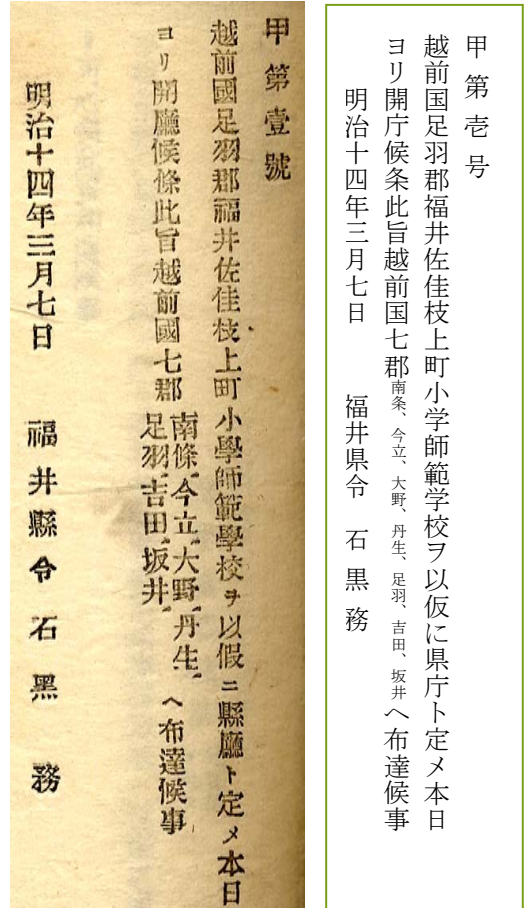 甲第壱号
越前国足羽郡福井佐佳枝上町小学師範学校ヲ以仮に県庁ト定メ本日
ヨリ開庁候条此旨越前国七郡南条、今立、大野、丹生、足羽、吉田、坂井へ布達候事
明治十四年三月七日　福井県令　石黒務
甲第壹號
越前國足羽郡福井佐佳枝上町小學師範學校ヲ以假ニ縣廳ト定メ本日
ヨリ開廳候條此旨越前國七郡南條、今立、大野、丹生、足羽、吉田、坂井、へ布達候事
明治十四年三月七日　福井縣令　石黑　務